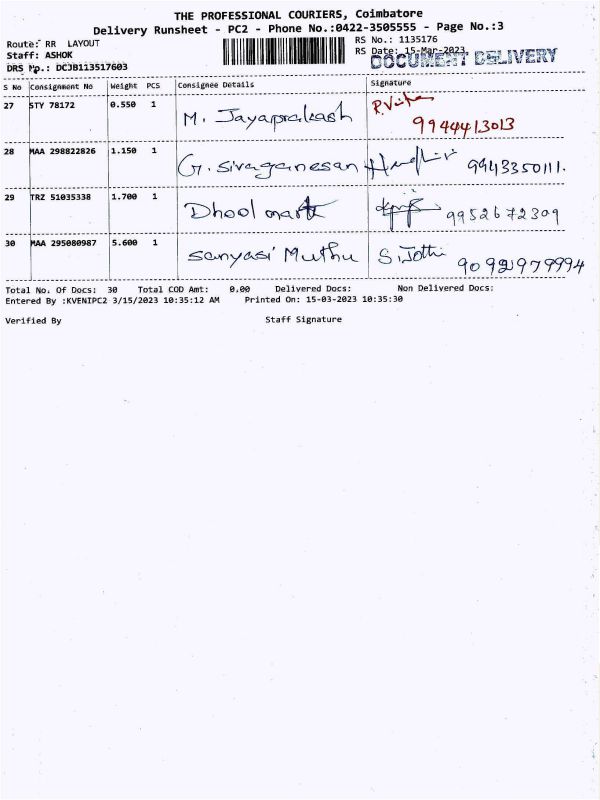 THE PROFESSIONAL COURIERS, Coimbatore
Delivery Runsheet - PC2 - Phone No.:0422-3505555 - Page No.:3
Route: RR LAYOUT
RS No.: 1135176
Staff: ASHOK
RS Date: 15-Mar-2023
DOCUMENT DELIVERY
DRS No.: DCJB113517603
S No Consignment No Weight PCS Consignee Details Signature
27 STY 78172 0.550 1 M. Jayaprakash
9944413013
28 MAA 298822826 1.150 1 G. Sivaganesan 9943350111.
29 TRZ 51035338 1.700 1 Dhool 9952672309
30 MAA 295080987 5.600 1 Sanyasi Muthu S. Jothi
Total No. Of Docs: 30 Total COD Amt: 0.00 Delivered Docs: Non Delivered Docs:
Entered By :KVENIPC2 3/15/2023 10:35:12 AM Printed On: 15-03-2023 10:35:30
Verified By Staff Signature